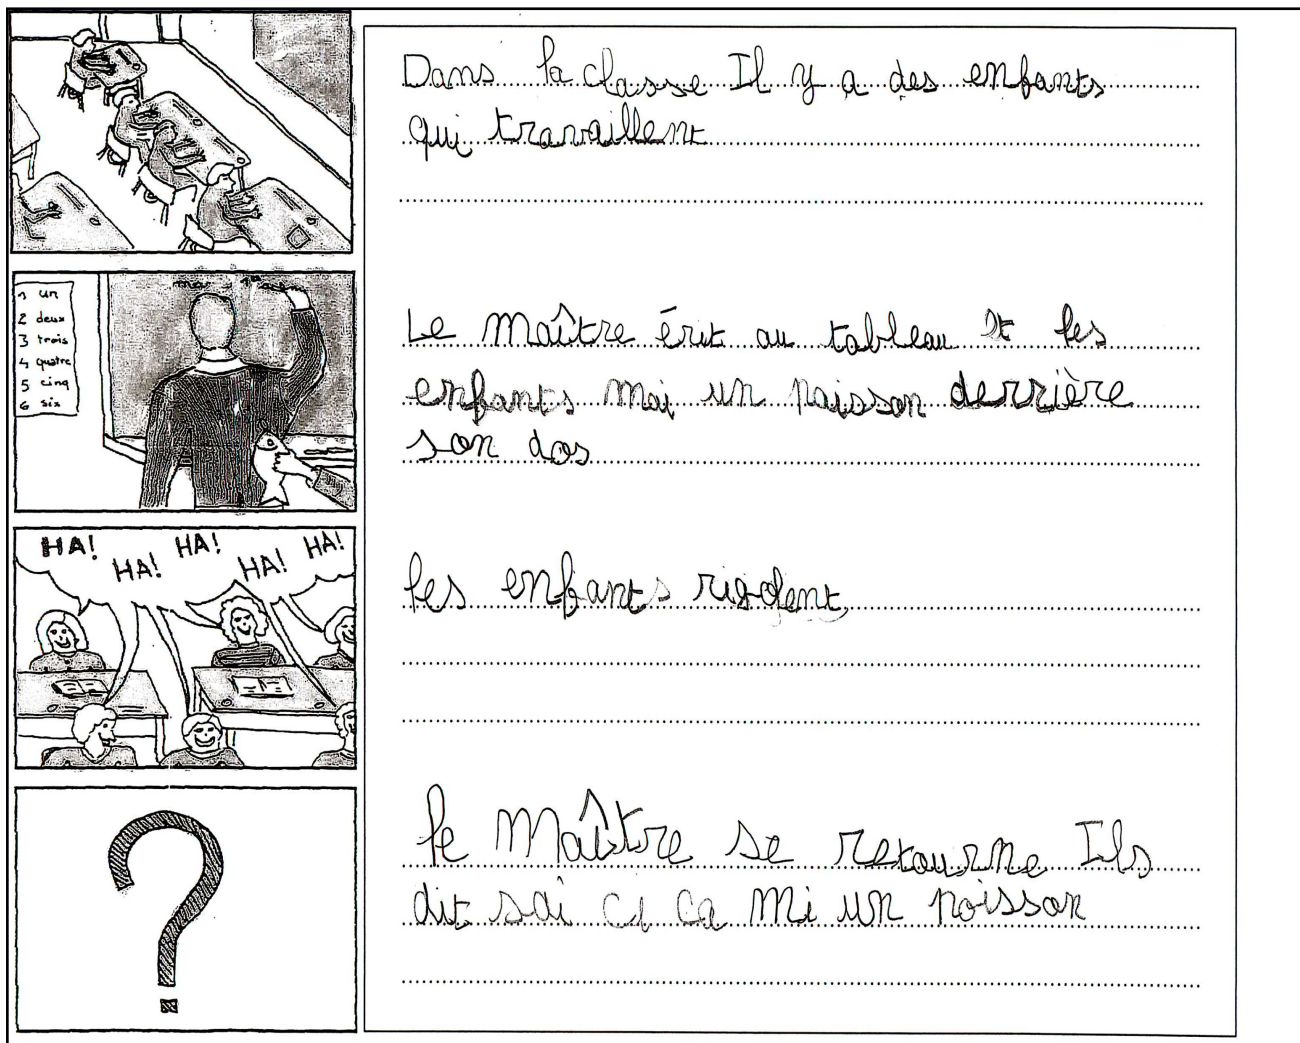 Dans la classe Il y a des enfants
qui travaillent
1 un
2 deux
3 trois
4 quatre
5 cinq
6 six
Le maître érit au tableau et les
enfants mai un paisson derrière
son dos
HA! HA! HA! HA! HA!
les enfants rigolent
?
le Maître se retourne Ils
dit sai ci ca mi un poisson